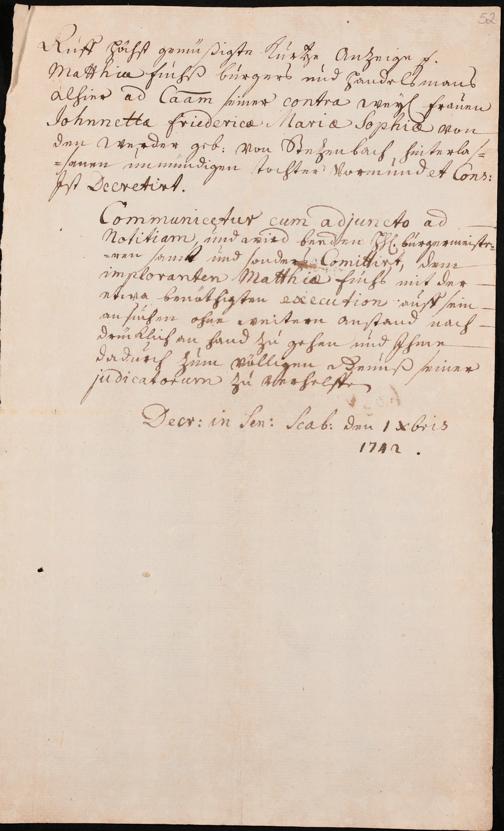 52
Auff höchst gemüßigte kurtze Anzeige s.
Matthiæ Fuchs burgers und handelsmans
alhier ad Caãm seiner contra weyl. frauen
Johnnetta Friedericæ Mariæ Sophiæ von
den Werder geb: von Stetzenbach hinterlas=
=senen unmündigen tochter Vormund et Cons:
Ist Decretirt.
Communicetur cum adjuncto ad
Notitiam, und wird beyden Hh. bürgermeiste=
=ren samt und sonders Comittirt, dem
imploranten Matthiæ Fuchs mit der
etwa benöthigten execution auff sein
ansuchen ohne weitern anstand nach=
drücklich an hand zu gehen und Ihme
dadurch zum völligen seiner
judicatorum zu verhelffen
Decr: in Sen: Scab: den 1 Xbris
1742.